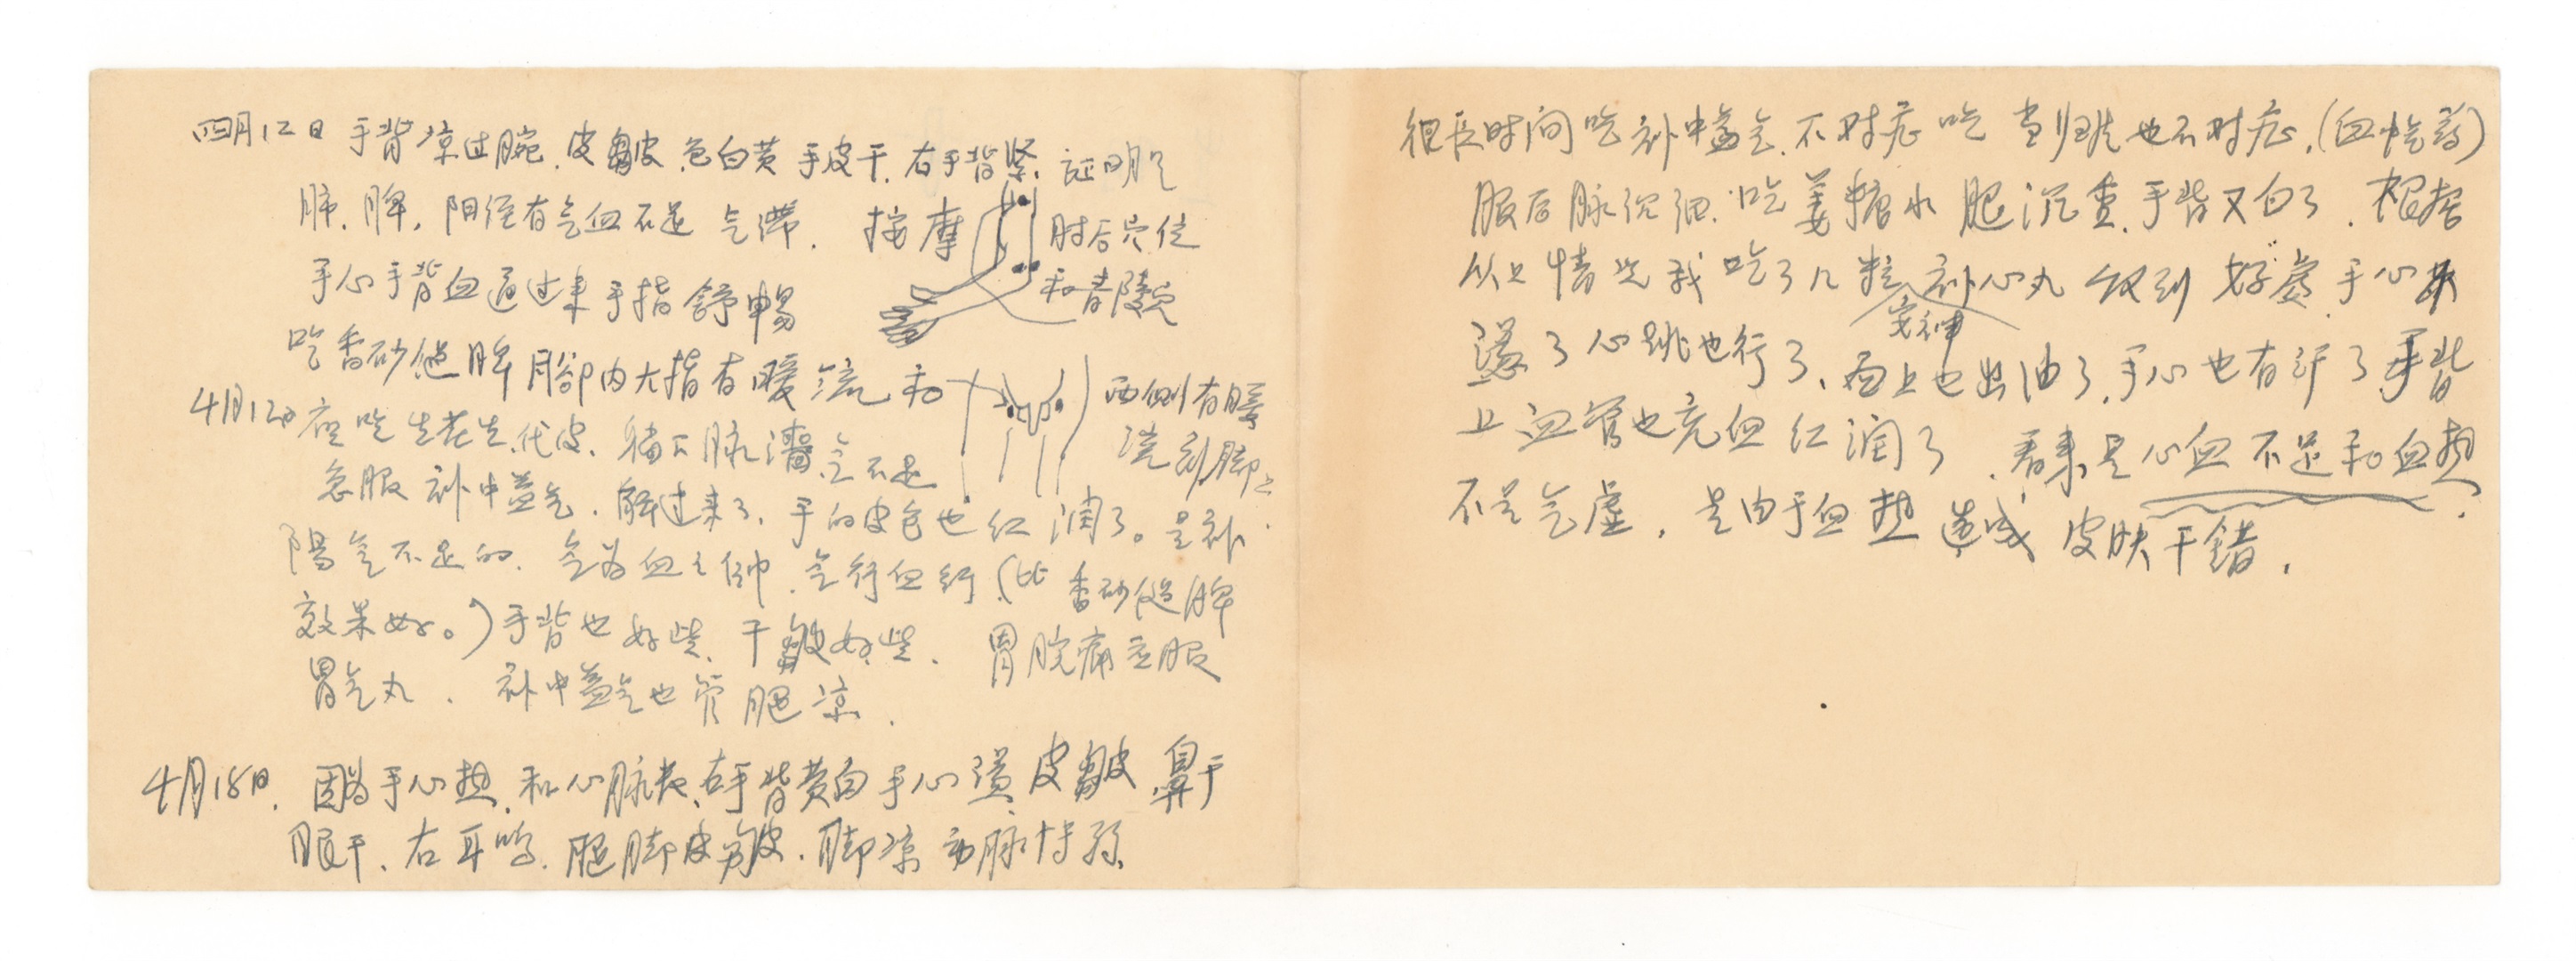 四月12日 手背凉过腕.皮皺皮.色白黄手皮干.右手背紧.证明是
肺.脾.阳经有气血不足 气滞. 按摩 肘后穴位
和青陵穴
手心手背血通过来手指舒暢
吃香砂健脾脚内大指有暖流和 西侧有暖
流到脚上
4月12日 夜吃生花生代皮. 脉濇气不足
急服补中益气.解过来了.手的皮色也红润了。是补
陽气不足的.气为血之帅.气行血行.(比香砂健脾
效果好。)手背也好些.干皺好些. 胃脘痛应服
胃气丸. 补中益气也管腿凉.
4月18日. 因为手心热.和心脉长.右手背黄白手心湿.皮皺皮.鼻干
眼干.右耳鸣.腿脚皮皺皮.脚凉动脉特弱
很长时间吃补中益气.不对症吃当归 也不对症.(血 药)
服后脉沉细.吃姜糖水腿沉重.手背又白了.根据
以上情况我吃了几粒补心丸 到好處.手心
安神
湿了心跳也行了.面上也出油了.手心也有汗了手背
上血管也充血红润了.看来是心血不足和血热.
不是气虚.是由于血热造成皮肤干错.